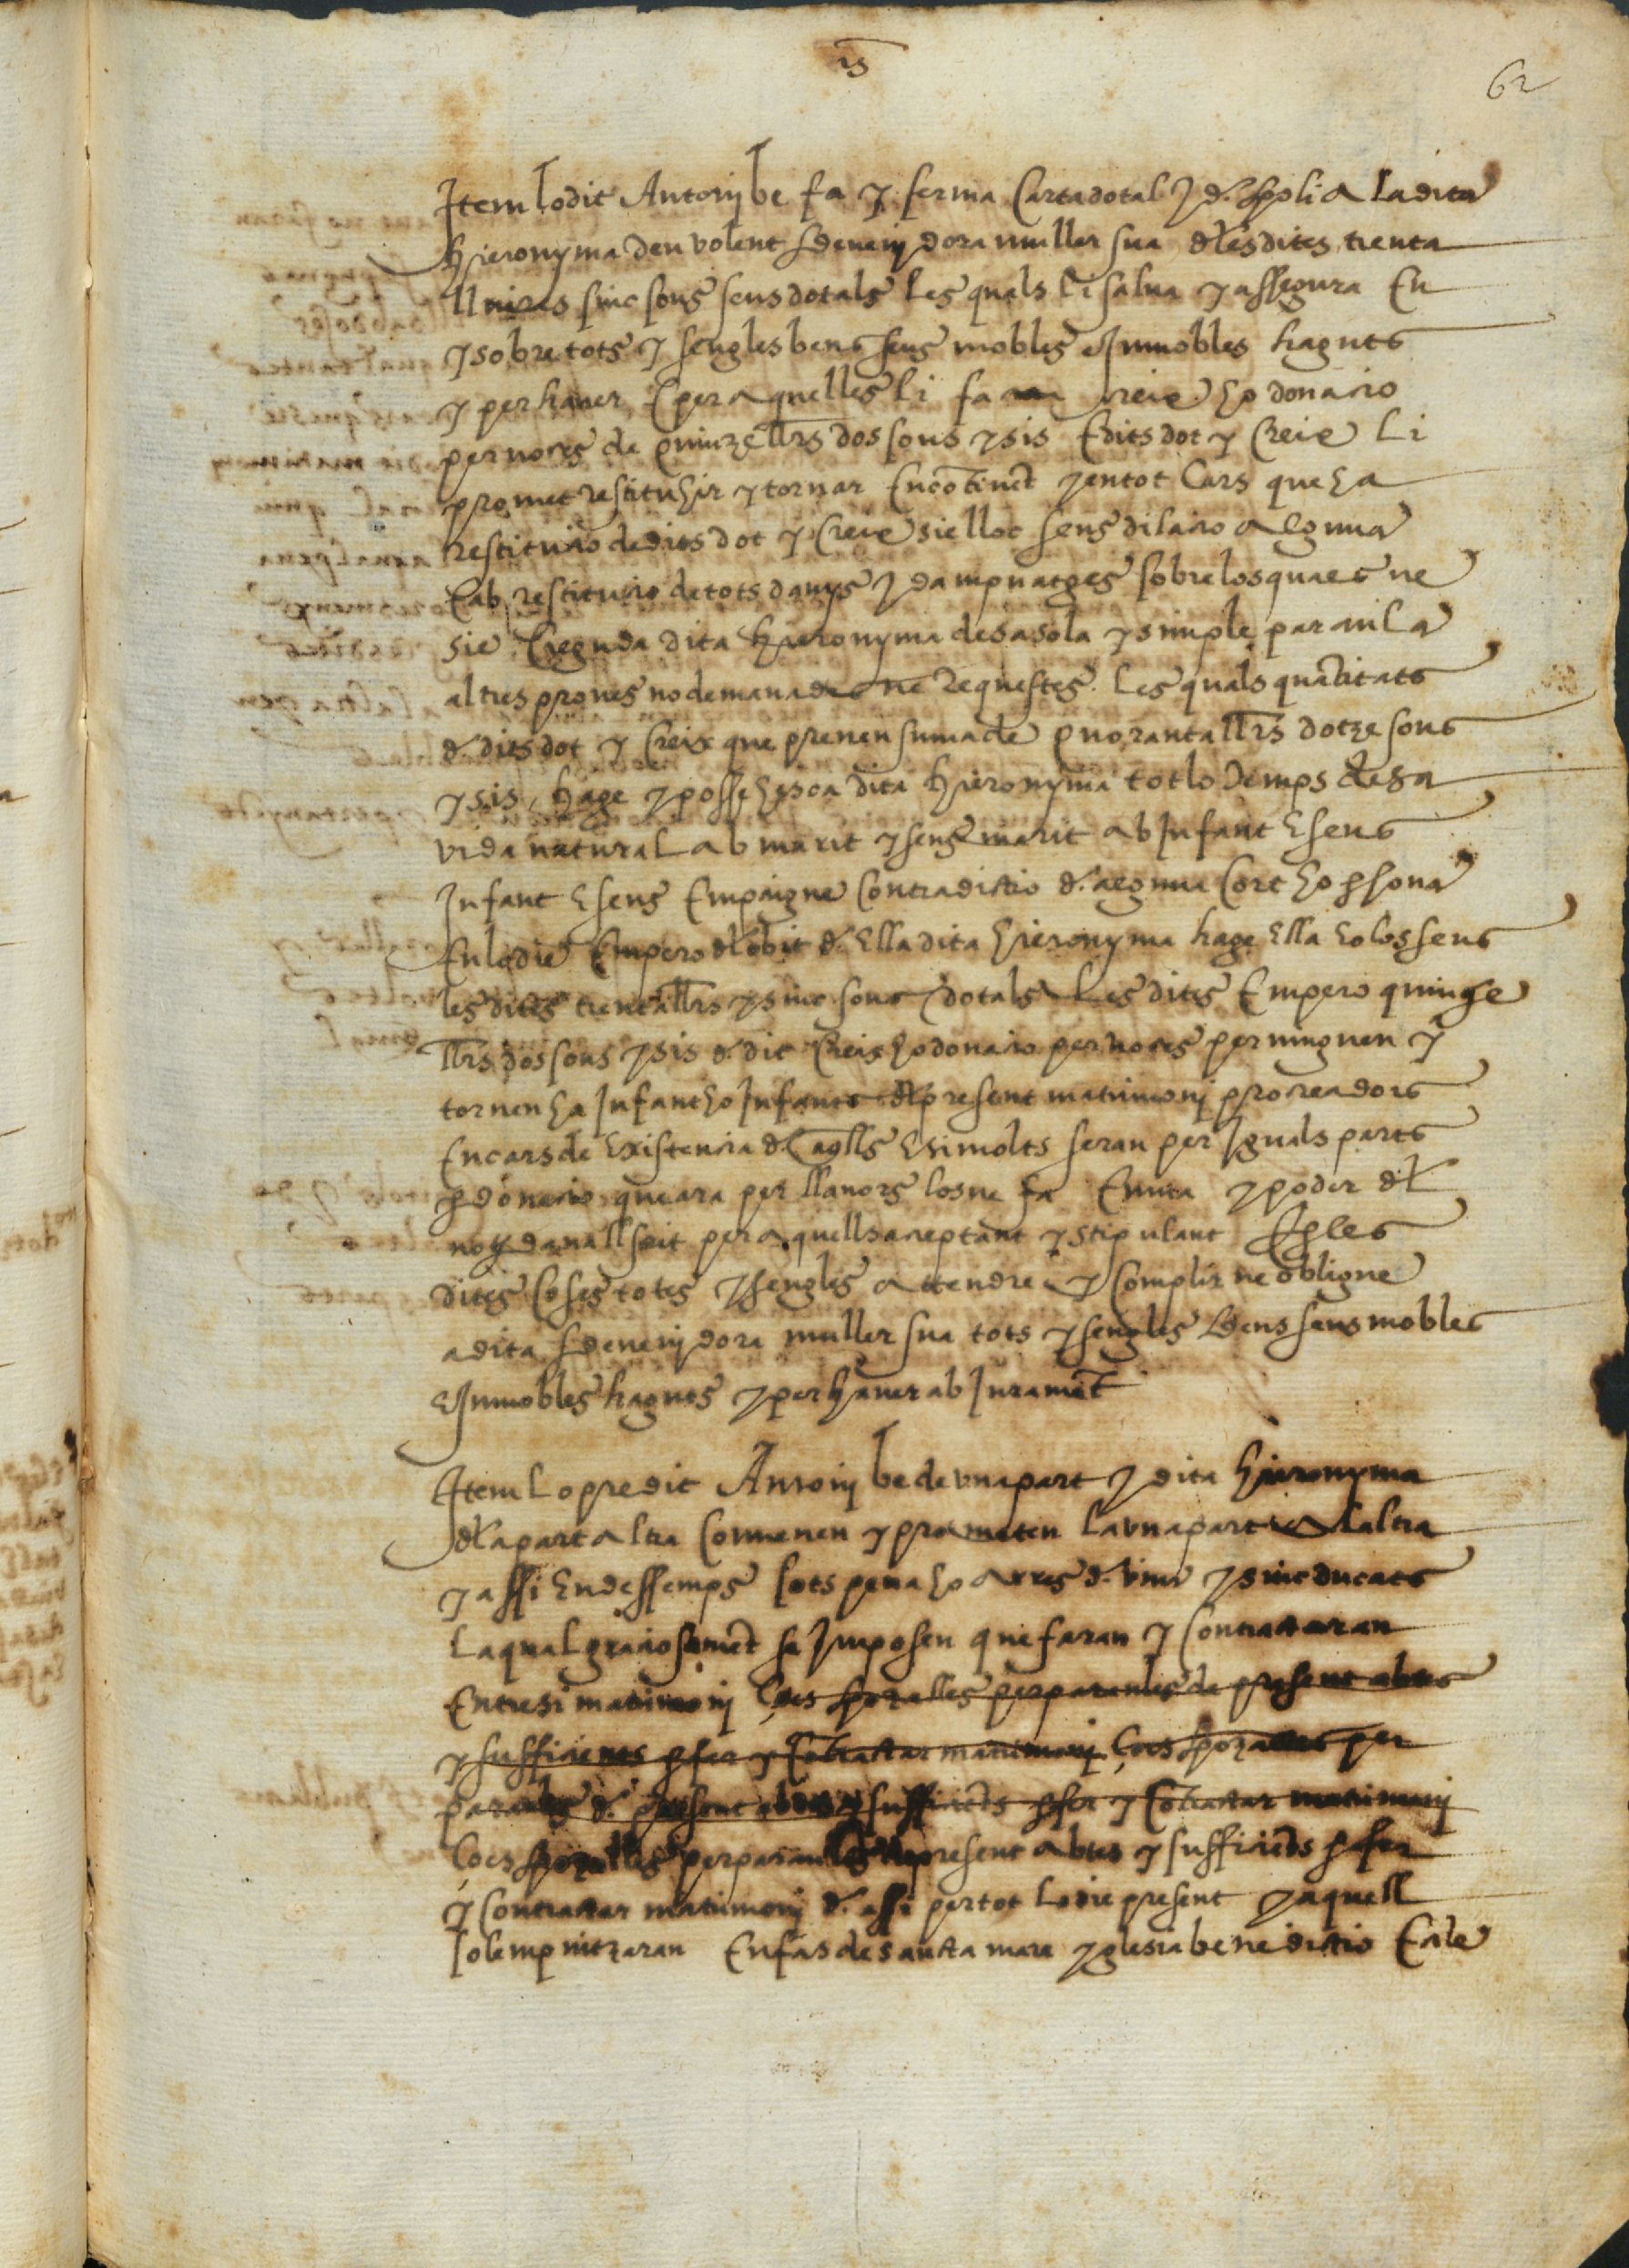 is
62
Item lo dit Antonj be fa y ferma Carta dotal y d. spoli A la dita
Hieronyma deu volent sdevenjdora muller sua d les dites trenta
lliures sinc sous seus dotals les quals li salva y assegura En
y sobre tots y sengles bens seus mobles e Inmobles haguts
y per haver E per Aquelles li fa creix ho donacio
per noces de Quinze llrs dos sous y sis E dits dot y Creix li
promet restituhir y tornar Encōtinēt y en tot Cars que ha
restitucio de dits dot y Creix sie lloc sens dilacio Alguna
E ab restitucio de tots danys y dampnatges sobre los quals ne
sie Creguda dita Hieronyma de sa sola y simple paraula
altres proves no demanades ne Requestes. les quals quātitats
d. dits dot y Creix que prenen suma de Quoranta llrs dotze sous
y sis hage y possehesca dita Hieronyma tot lo Temps de sa
vida natural Ab marit y sens marit Ab Infant E sens
Infant E sens Empaigne Contradictio d. alguna Cort ho psona
En lo die Empero d l obit d. Ella dita Hieronyma hage Ella ho los seus
les dites trenta llrs y sinc sous dotals Les dites Empero quinze
llrs dos sous y sis d. dit Creix ho donacio per noces pervinguen y
tornen ha Infant ho Infants d l present matrimonj procreadors
En cars de Existencia d aqlls E si molts seran per Iguals parts
p donacio que ara per llavors los ne fa En ma y poder d l
not davall scit per Aquells acceptant y stipulant E p les
dites Coses totes y sengles Attendre y Complir ne obligue
a dita sdevenjdora muller sua tots y sengles Bens seus mobles
e Inmobles haguts y per haver ab Juramēt
Item Lo predit Antonj be de una part y dita Hieronyma
d la part Altra Convenen y prometen la una part A laltra
y assi Endessemps sots pena ho Arres d. vint y sinc ducats
La qual graciosamēt se Imposen que faran y Contractaran
Entre si matrimonj Ços sposalles per paraules de present abtes
y sufficients p fer y Cōtractar matrimonj Ços sposalles per
paraules d. present abtes y sufficiēts p fer y Cōtractar matrimonj
Ços sposalles per paraules de present Abtes y sufficiēts p fer
y Contractar matrimonj d. assi per tot lo die present y aquell
solempnitzaran En fas de sancta mare yglesia benedictio E a le